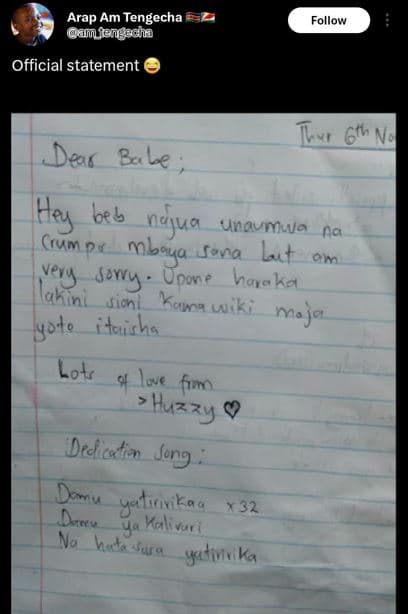 Arap Am Tengecha 🇰🇪🇸🇨
@am_tengecha
Follow
Official statement 😂
Thur 6th No
Dear Babe;
Hey beb najua unaumwa na
Crumps mbaya sana but am
very sorry. Upone haraka
lakini sioni kama wiki moja
yoto itaisha
Lots of love from
>Huzzy ♡
Dedication song:
Damu yatiririkaa x32
Damu ya Kalivari
Na hata sasa yatiririka